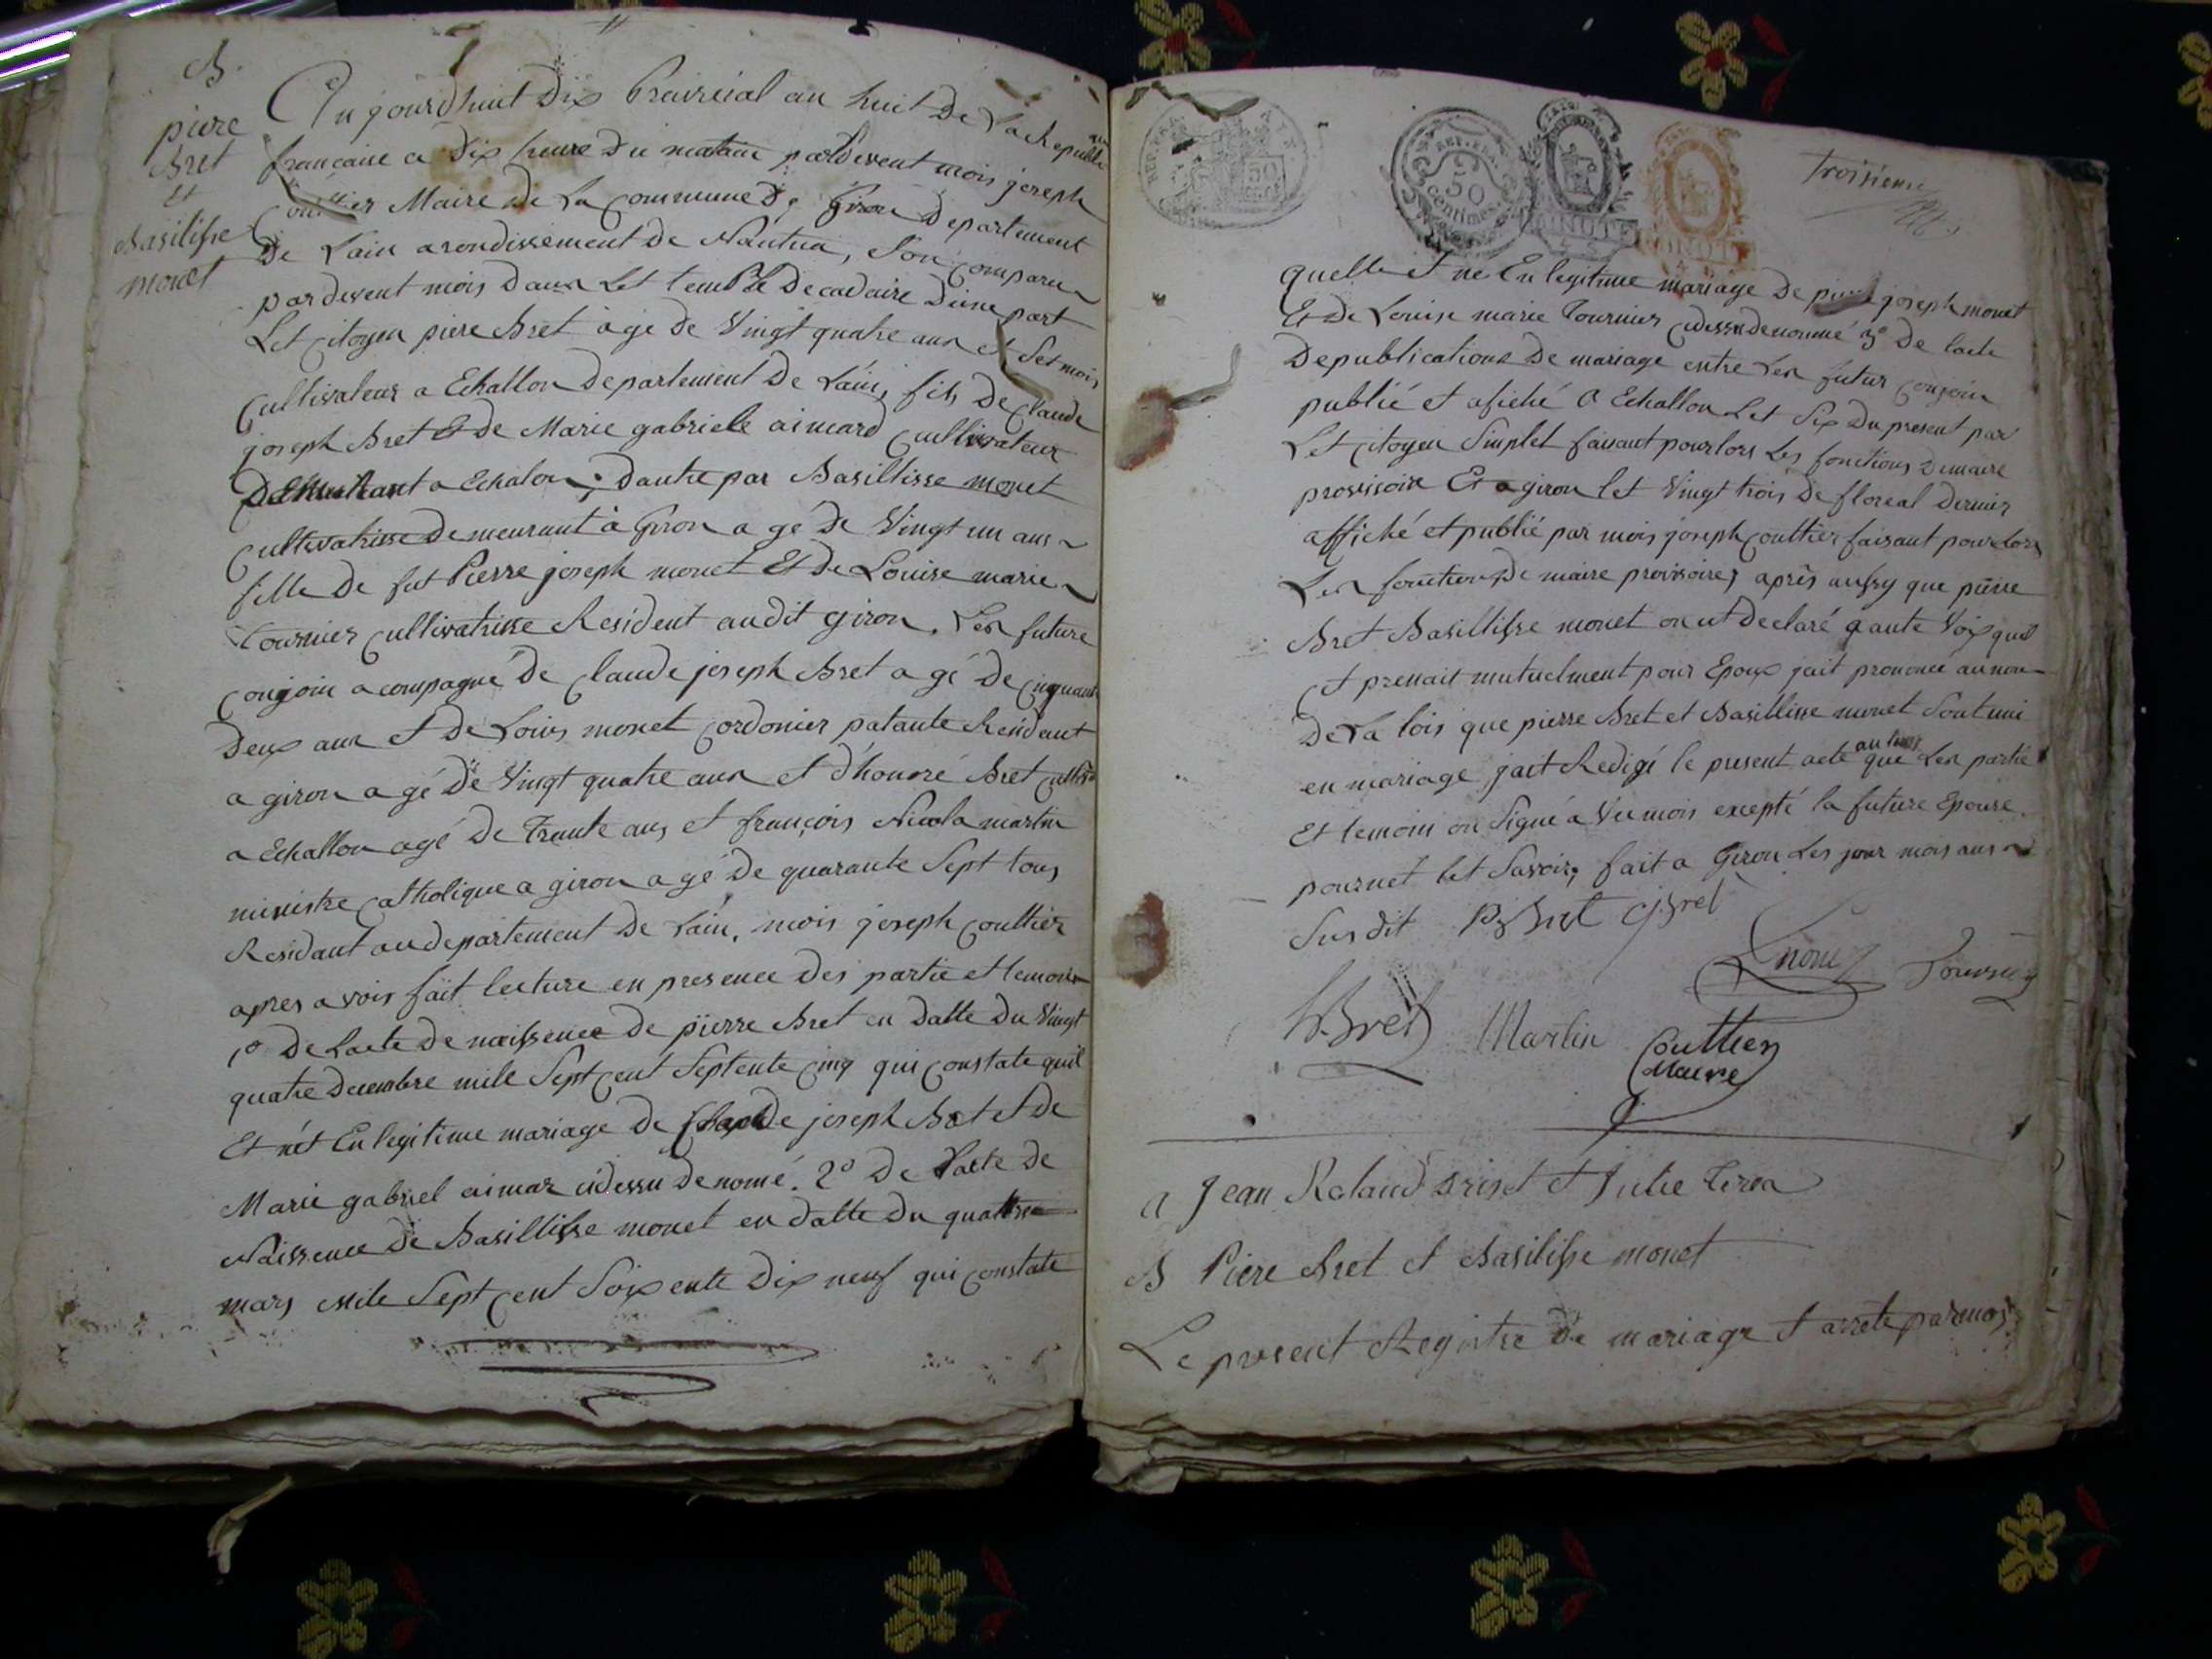 B.
piere
Bret
et
Basilisse
monet
Aujourdhuit dix Preireial an huit de la Republi
que
francaise a dix heure du matain pardevent mois joseph
Couttier Maire de la Commune de Giron Departement
de Lain arondissement de Nantua, Son comparu
pardevent mois dans Let temple Decadaire Dune part
Let citoyen piere Bret àgé de Vingt quatre ans et Set mois
Cultivateur a Echallon departement de Lain, fils de Claude
joseph Bret Et de Marie gabriele aimard cultivateur
a Echalon; Dautre par Basillisse monet
Cultivatrisse demeurant à Giron a gé de Vingt un ans
fille de fut Pierre joseph monet Et de Louise marie
Tournier Cultivatrisse Resident audit giron. Les future
Conjoin acompagné de Claude joseph Bret a gé de cinquante
Deux ans et de Louis monet Cordonier patante Residant
a giron a gé de Vingt quatre ans et d'honoré Bret
a Echallon agé de Trante ans et françois Nicola martin
ministre Catholique a giron a gé de quarante Sept tous
Residant au departement de Lain. mois joseph Couttier
apres avoir fait lecture en presence des partie et temoin
1º de Lacte de naissence de pierre Bret en datte du Vingt
quatre decembre mile Sept cent Septente cinq qui constate quil
Et nét En legitime mariage de Claude joseph Bret et de
Marie gabriel aimar cidessu denomé. 2º de Lacte de
Naissence de Basillisse monet en datte du quattre
mars mile Sept cent Soixente dix neuf qui constate
REP. FRA.
50
centimes
MINUTE
MINUTE
troisieme
quelle et né En legitime mariage de piere joseph monet
Et de Louise marie Tournier cidessu denommé 3º de lacte
de publications de mariage entre Les futur conjoin
publié et afiché a Echallon Let Six du present par
Let citoyen Simplet faisant pourlors Les fonctions dumaire
provisoire Et a giron let Vingt trois de floreal dernier
affiché et publié par mois joseph Couttier faisant pourlors
Les fonctions de maire provisoire, après aussy que pierre
Bret Basillisse monet on ut declaré a aute Voix quil
et prenait mutuelment pour Epoux jait prononcé aunon
de La lois que pierre Bret et Basillisse monet Sont uni
en mariage jait Redigé le present acte que Les partie
Et temoin on Signé a Vec mois excepté la future Epouse
pour net let Savoir, fait a Giron Les jour mois ans
Susdit P. Bret C.J. Bret
Tournier
h. Bret Martin Couttier
Maire
a Jean Roland et Julie
B Piere Bret et Basilisse monet
Le present Registre de mariage et arreté par mois